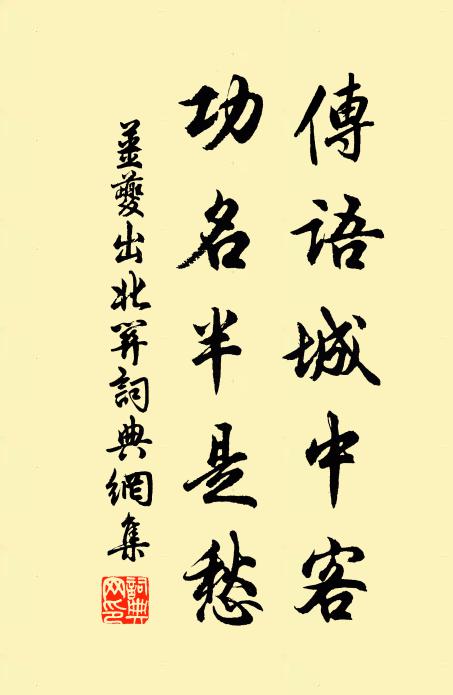 傳語城中客
功名半是愁
薑夔出北関詞典網集
詞典
网印